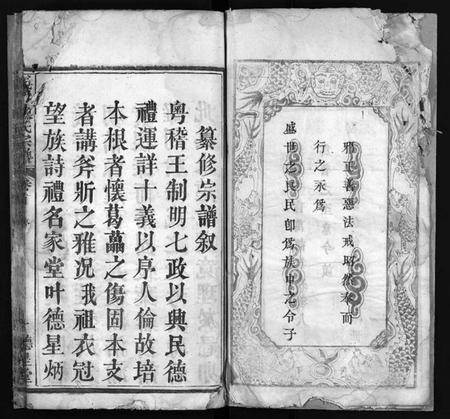 邪正善惡法戒昭然奉而
行之永爲
盛世之良民卽爲族中之令子
纂修宗譜叙
粤稽王制明七政以興民德
禮運詳十義以序人倫故培
本根者懷葛藟之傷固本支
者講斧斨之雅况我祖衣冠
望族詩禮名家堂叶德星炳
氏宗譜
卷首
德星堂